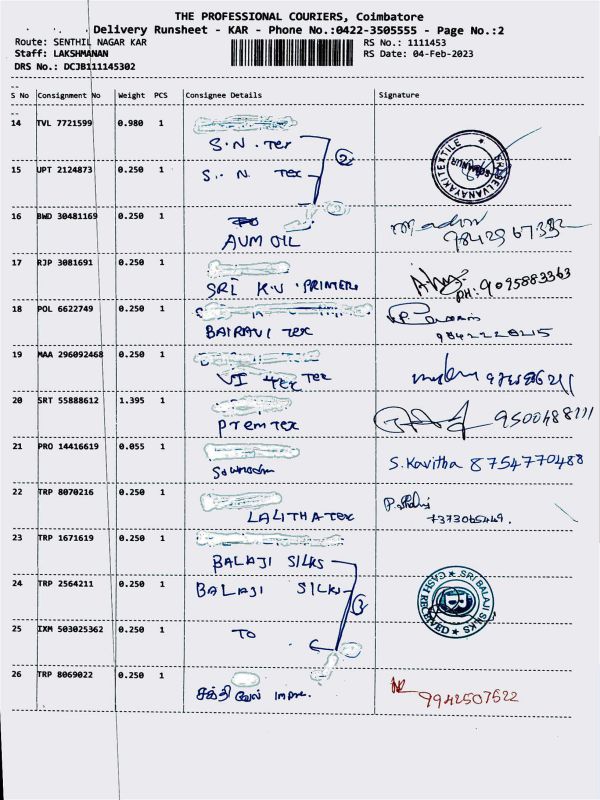 THE PROFESSIONAL COURIERS, Coimbatore
Delivery Runsheet - KAR - Phone No.:0422-3505555 - Page No.:2
Route: SENTHIL NAGAR KAR RS No.: 1111453
Staff: LAKSHMANAN RS Date: 04-Feb-2023
DRS No.: DCJB111145302
S No Consignment No Weight PCS Consignee Details Signature
14 TVL 7721599 0.980 1
S.N. Tex
2
15 UPT 2124873 0.250 1 S.. N Tex
SRI SELVANAYAKI TEXTILE SOMANUR
16 BWD 30481169 0.250 1
AUM OIL
17 RJP 3081691 0.250 1
SRI K.V. PRINTERS PH: 9095883363
18 POL 6622749 0.250 1
BAIRAVI Tex 9842228215
19 MAA 296092468 0.250 1
VI Tex Tex
20 SRT 55888612 1.395 1
Prem Tex
21 PRO 14416619 0.055 1
S. Kavitha 8754770488
22 TRP 8070216 0.250 1
LALITHA Tex 7373065449.
23 TRP 1671619 0.250 1
BALAJI SILKS
24 TRP 2564211 0.250 1 BALAJI SILKS
3
SRI BALAJI SILKS CASH RECEIVED
25 IXM 503025362 0.250 1 TO
26 TRP 8069022 0.250 1
சக்தி வேல் Impex. 9942507522